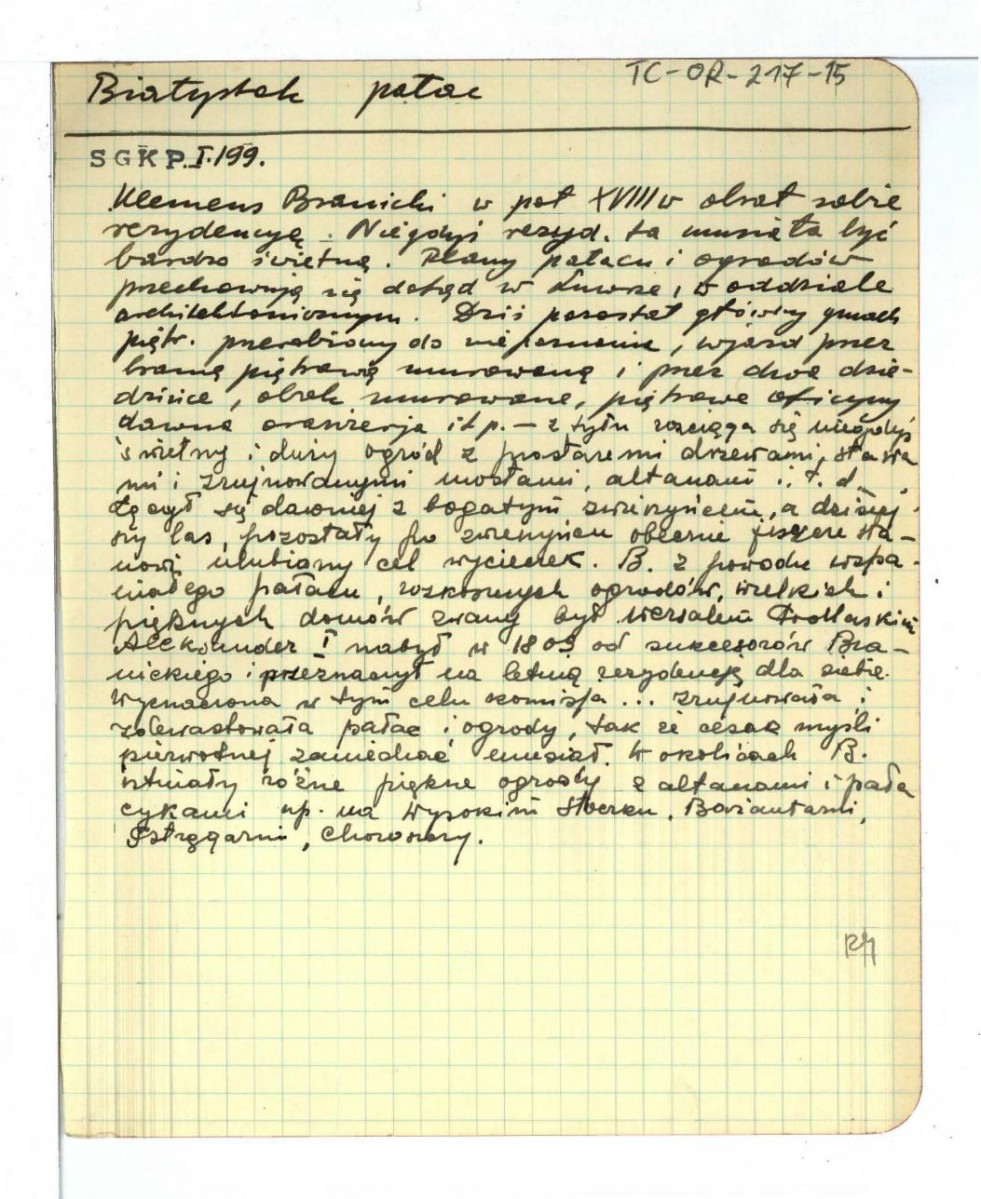 TC-OR-217-15
Białystok pałac
SGKP.I.199.
Klemens Branicki w poł XVIII w obrał sobie
rezydencyą. Niegdyś rezyd. ta musiała być
bardzo świetną. Plany pałacu i ogrodów
przechowują się dotąd w Luwrze, w oddziale
architektonicznym. Dziś pozostał główny gmach
piętr. przerobiony do niepoznania, wjazd przez
bramę piętrową murowaną i przez dwa dzie-
dzińce, obok murowane, piętrowe oficyny
dawna oranżerja itp. – z tyłu rozciąga się niegdyś
świetny i duży ogród z prostaremi drzewami, stawa
mi i zrujnowanymi mostami, altanami i. t. d.
Łączył się dawniej z bogatym zwierzyńcem, a dzisiej-
szy las, pozostały po zwierzyńcu obecnie jeszcze sta-
nowi ulubiony cel wycieczek. B. z powodu wspa-
niałego pałacu, rozkosznych ogrodów, wielkich i
pięknych domów zwany był wersalem Podlaskim
Aleksander I nabył w 1809 od sukcesorów Bra-
nickiego i przeznaczył na letnią rezydencję dla siebie.
Wyznaczona w tym celu komisja... zrujnowała i
zdewastowała pałac i ogrody, tak że cesarz myśli
pierwotnej zaniechać musiał. W okolicach B.
istniały różne piękne ogrody z altanami i pała
cykami np. na Wysokim Stoczku, Bażantarni,
Pstrągarni, Choroszczy.